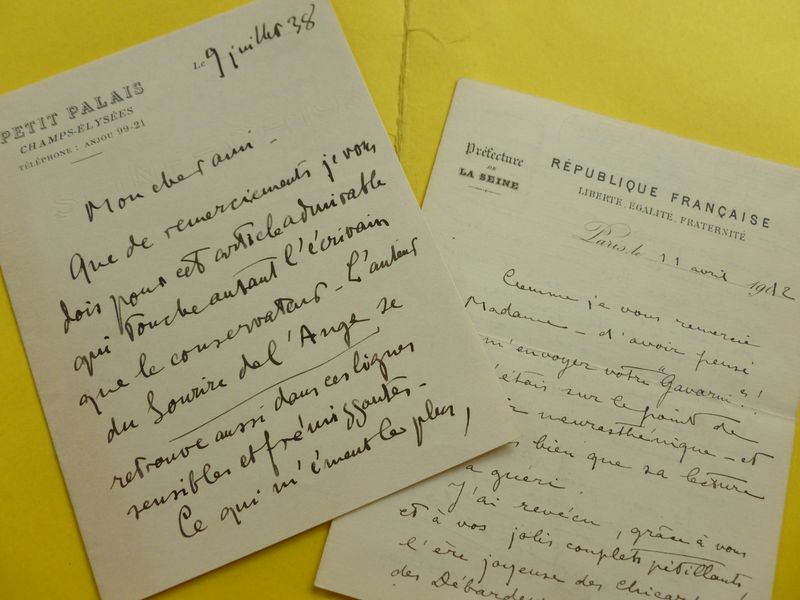 PETIT PALAIS
CHAMPS-ÉLYSÉES
TÉLÉPHONE : ANJOU 99-21
Le 9 juillet 38
Mon cher ami -
Que de remerciements je vous
dois pour cet article admirable
qui touche autant l'écrivain
que le conservateur - L'auteur
du Sourire de l'Ange se
retrouve aussi dans ces lignes
sensibles et frémissantes -
Ce qui m'émeut le plus,
Préfecture
DE
LA SEINE
RÉPUBLIQUE FRANÇAISE
LIBERTÉ, EGALITÉ, FRATERNITÉ
Paris, le 11 avril 1912
Comme je vous remercie
Madame - d'avoir pensé
m'envoyer votre "Gavarni"!
étais sur le point de
neurasthénique - et
bien que sa lecture
a guéri!
J'ai revécu, grâce à vous
et à vos jolis couplets pétillants
l'ère joyeuse des Chicar
des Débarde